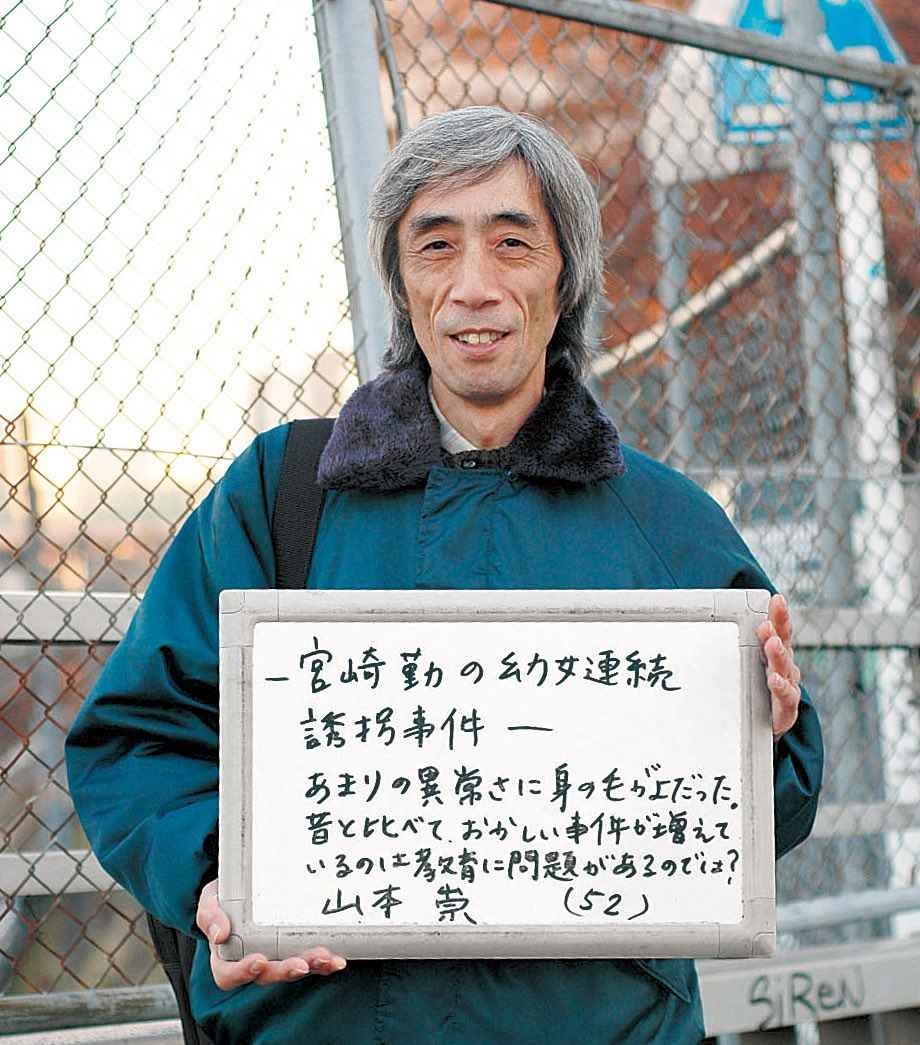 ―宮崎勤の幼女連続
誘拐事件―
あまりの異常さに身の毛が上だった。
昔と比べて、おかしい事件が増えて
いるのは教育に問題があるのでは?
山本 崇 (52)
SiReN